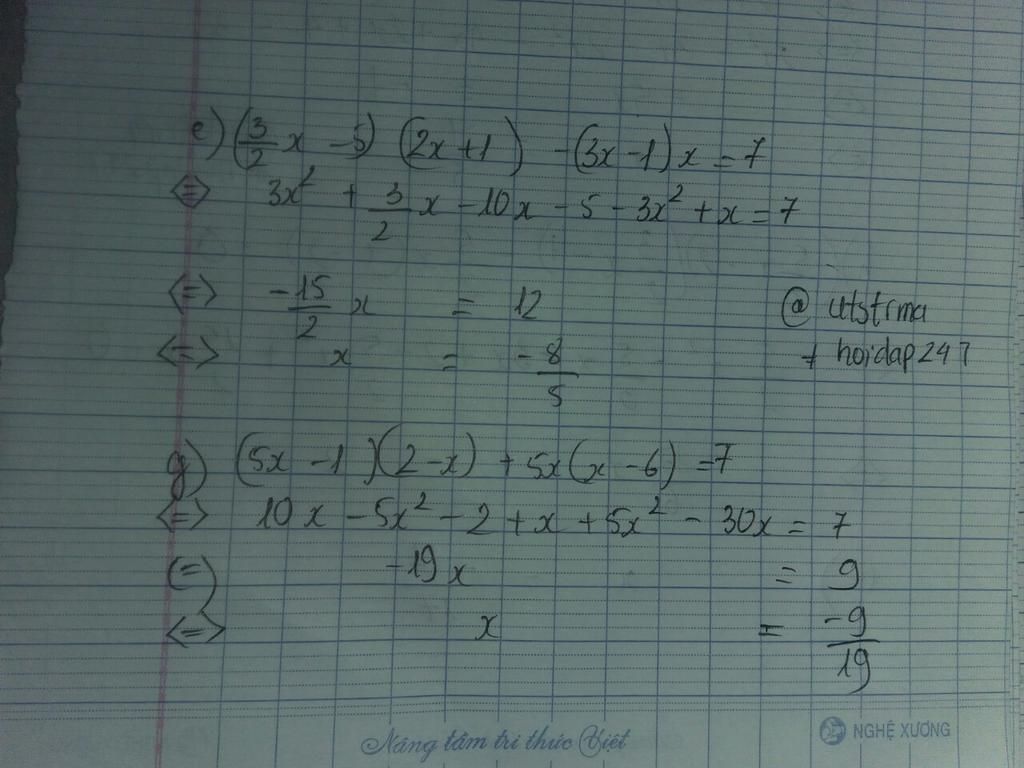 e) (3/2 x - 5) (2x + 1) - (3x - 1) x = 7
<=> 3x² + 3/2 x - 10x - 5 - 3x² + x = 7
<=> -15/2 x = 12
@ utstrma
<=> x = -8/5
+ hoidap247
g) (5x - 1)(2 - x) + 5x(x - 6) = 7
<=> 10x - 5x² - 2 + x + 5x² - 30x = 7
(=) -19x = 9
<=> x = -9/19
Nâng tầm tri thức Việt
NGHỆ XƯƠNG